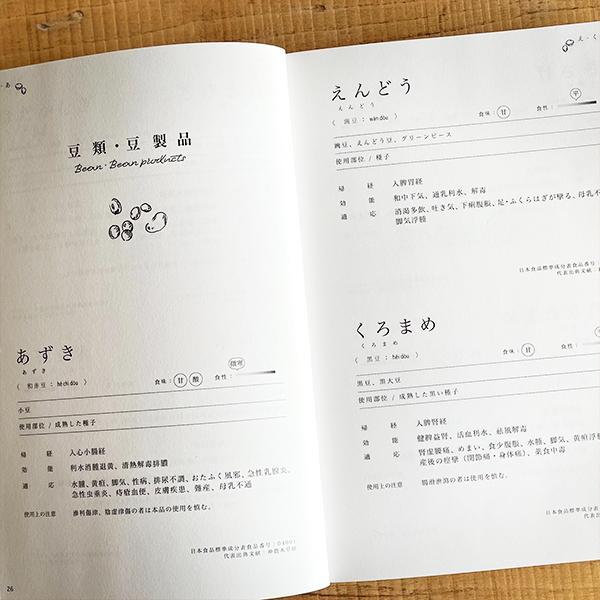 あ
豆類・豆製品
Bean・Bean products
あずき
あずき
食味：甘 酸 食性：微寒
小豆
使用部位 / 成熟した種子
帰経 入心小腸経
効能 利水消腫退黄、清熱解毒排膿
適応 水腫、黄疸、脚気、性病、排尿不調、おたふく風邪、急性乳腺炎、
急性虫垂炎、痔瘡血便、皮膚疾患、難産、母乳不通
使用上の注意 滲利傷津、陰虚津傷の者は本品の使用を慎む。
日本食品標準成分表食品番号：04001
代表出典文献：神農本草経
26
え - く
えんどう
えんどう
（豌豆：wān dòu） 食味：甘 食性：平
豌豆、えんどう豆、グリーンピース
使用部位 / 種子
帰経 入脾胃経
効能 和中下気、通乳利水、解毒
適応 消渇多飲、吐き気、下痢腹脹、足・ふくらはぎが攣る、母乳不
脚気浮腫
日本食品標準成分表食品番号：
代表出典文献：
くろまめ
くろまめ
（黒豆：hēi dòu） 食味：甘 食性：
黒豆、黒大豆
使用部位 / 成熟した黒い種子
帰経 入脾腎経
効能 健脾益腎、活血利水、祛風解毒
適応 腎虚腰痛、めまい、食少腹脹、水腫、脚気、黄疸浮腫
産後の痙攣（関節痛・身体痛）、薬食中毒
使用上の注意 腸滑泄瀉の者は使用を慎む。
日本食品標準成分表食品
代表出典文